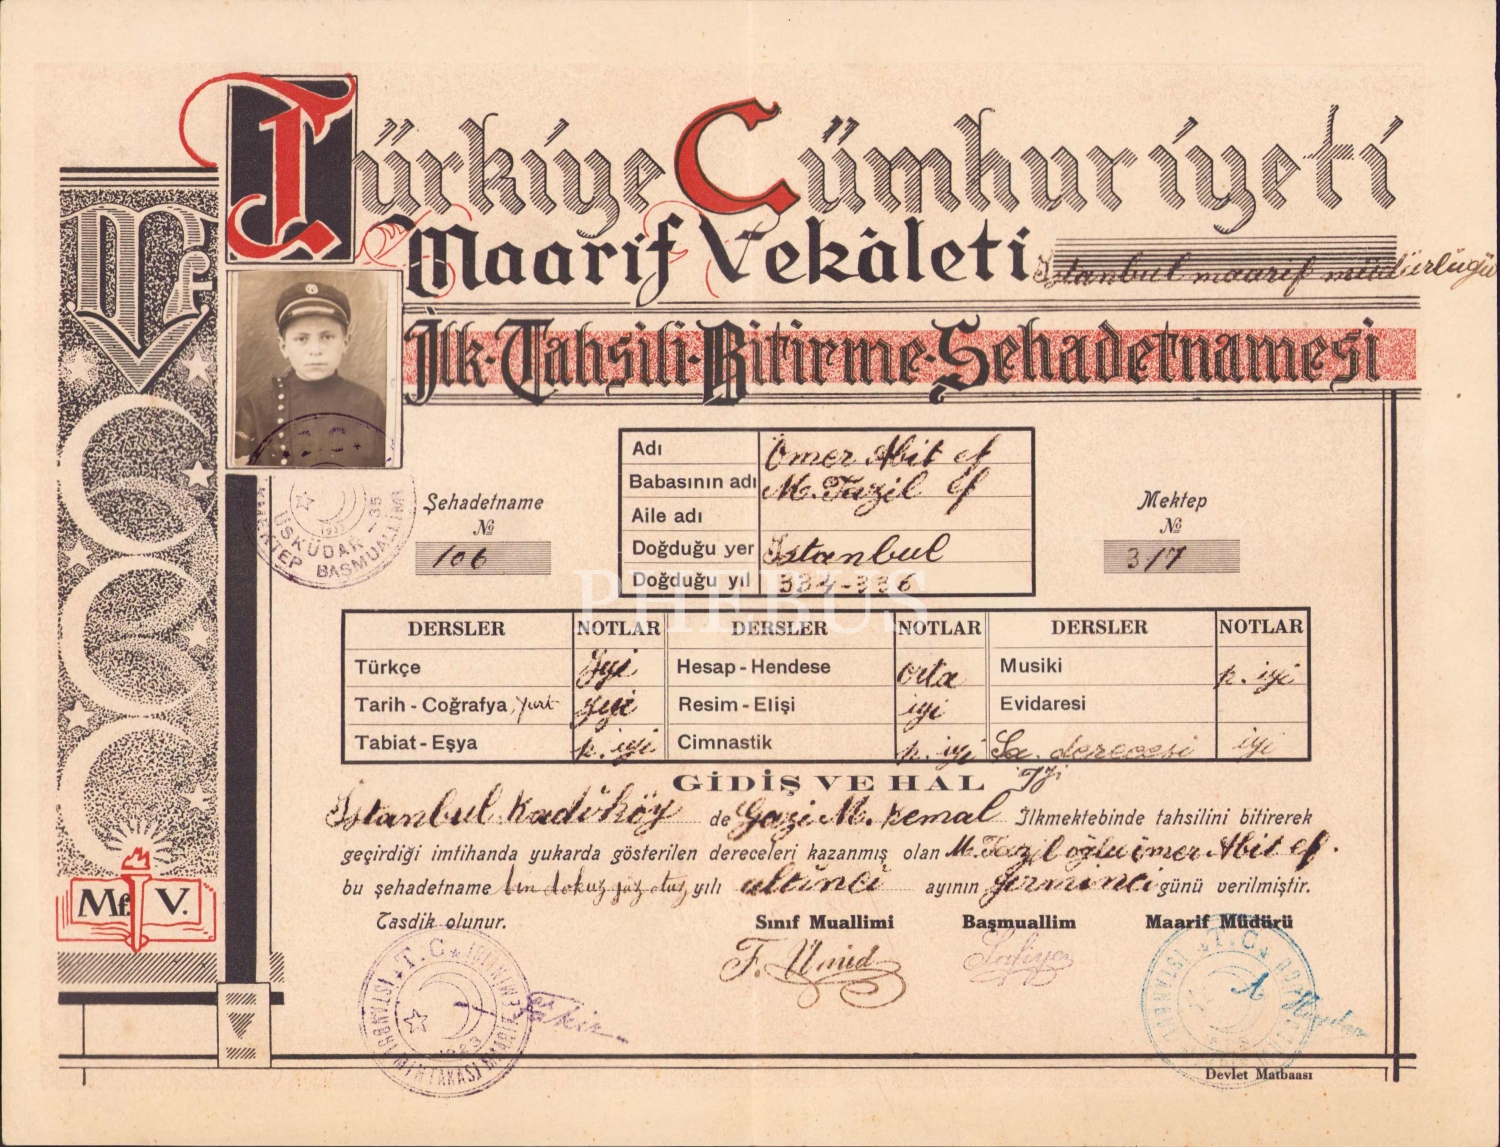 Türkiye Cümhuriyeti
Maarif Vekâleti İstanbul maarif müdürlüğü
İlk-Tahsili-Bitirme-Şehadetnamesi
Mf
Adı Ömer Abit ef
Babasının adı M. Fazıl ef
Aile adı
Doğduğu yer İstanbul
Doğduğu yıl 334-336
Şehadetname
№
106
Mektep
№
317
T. C.
ÜSKÜDAR - 35
MEKTEP BAŞMUALLİMİ
PHEBUS
DERSLER NOTLAR DERSLER NOTLAR DERSLER NOTLAR
Türkçe İyi Hesap - Hendese orta Musiki p. iyi
Tarih - Coğrafya, yurt iyi Resim - Elişi iyi Evidaresi
Tabiat - Eşya p. iyi Cimnastik p. iyi Sa. derecesi iyi
GİDİŞ VE HAL İyi
İstanbul Kadıköy de Gazi M. Kemal İlkmektebinde tahsilini bitirerek
geçirdiği imtihanda yukarda gösterilen dereceleri kazanmış olan M. Fazıl oğlu ömer Abit ef.
bu şehadetname bin dokuz yüz otuz yılı altıncı ayının yirminci günü verilmiştir.
Tasdik olunur. Sınıf Muallimi Başmuallim Maarif Müdürü
F. Ümid
Mf. V.
T. C.
İSTANBUL MINTAKASI MAARİF EMİNLİĞİ
T. C.
İSTANBUL
Devlet Matbaası